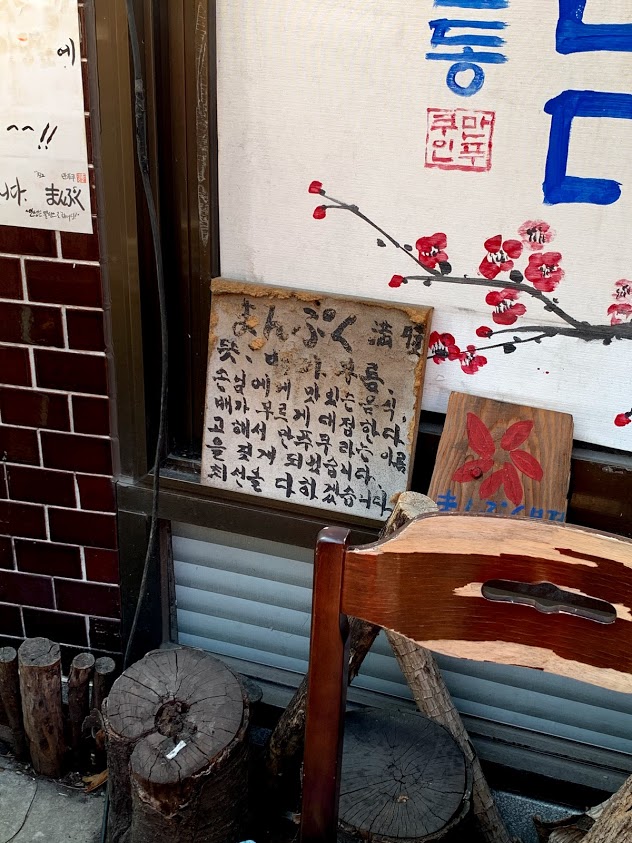 에
~~!!
니다. まんぷく
동
만푸
쿠인
まんぷく 満腹
뜻. 배가 부름
손님에게 맛있는 음식,
배가 부르게 대접한다
고 해서 만푸쿠라는 이름
을 짓게 되었습니다.
최선을 다하겠습니다.